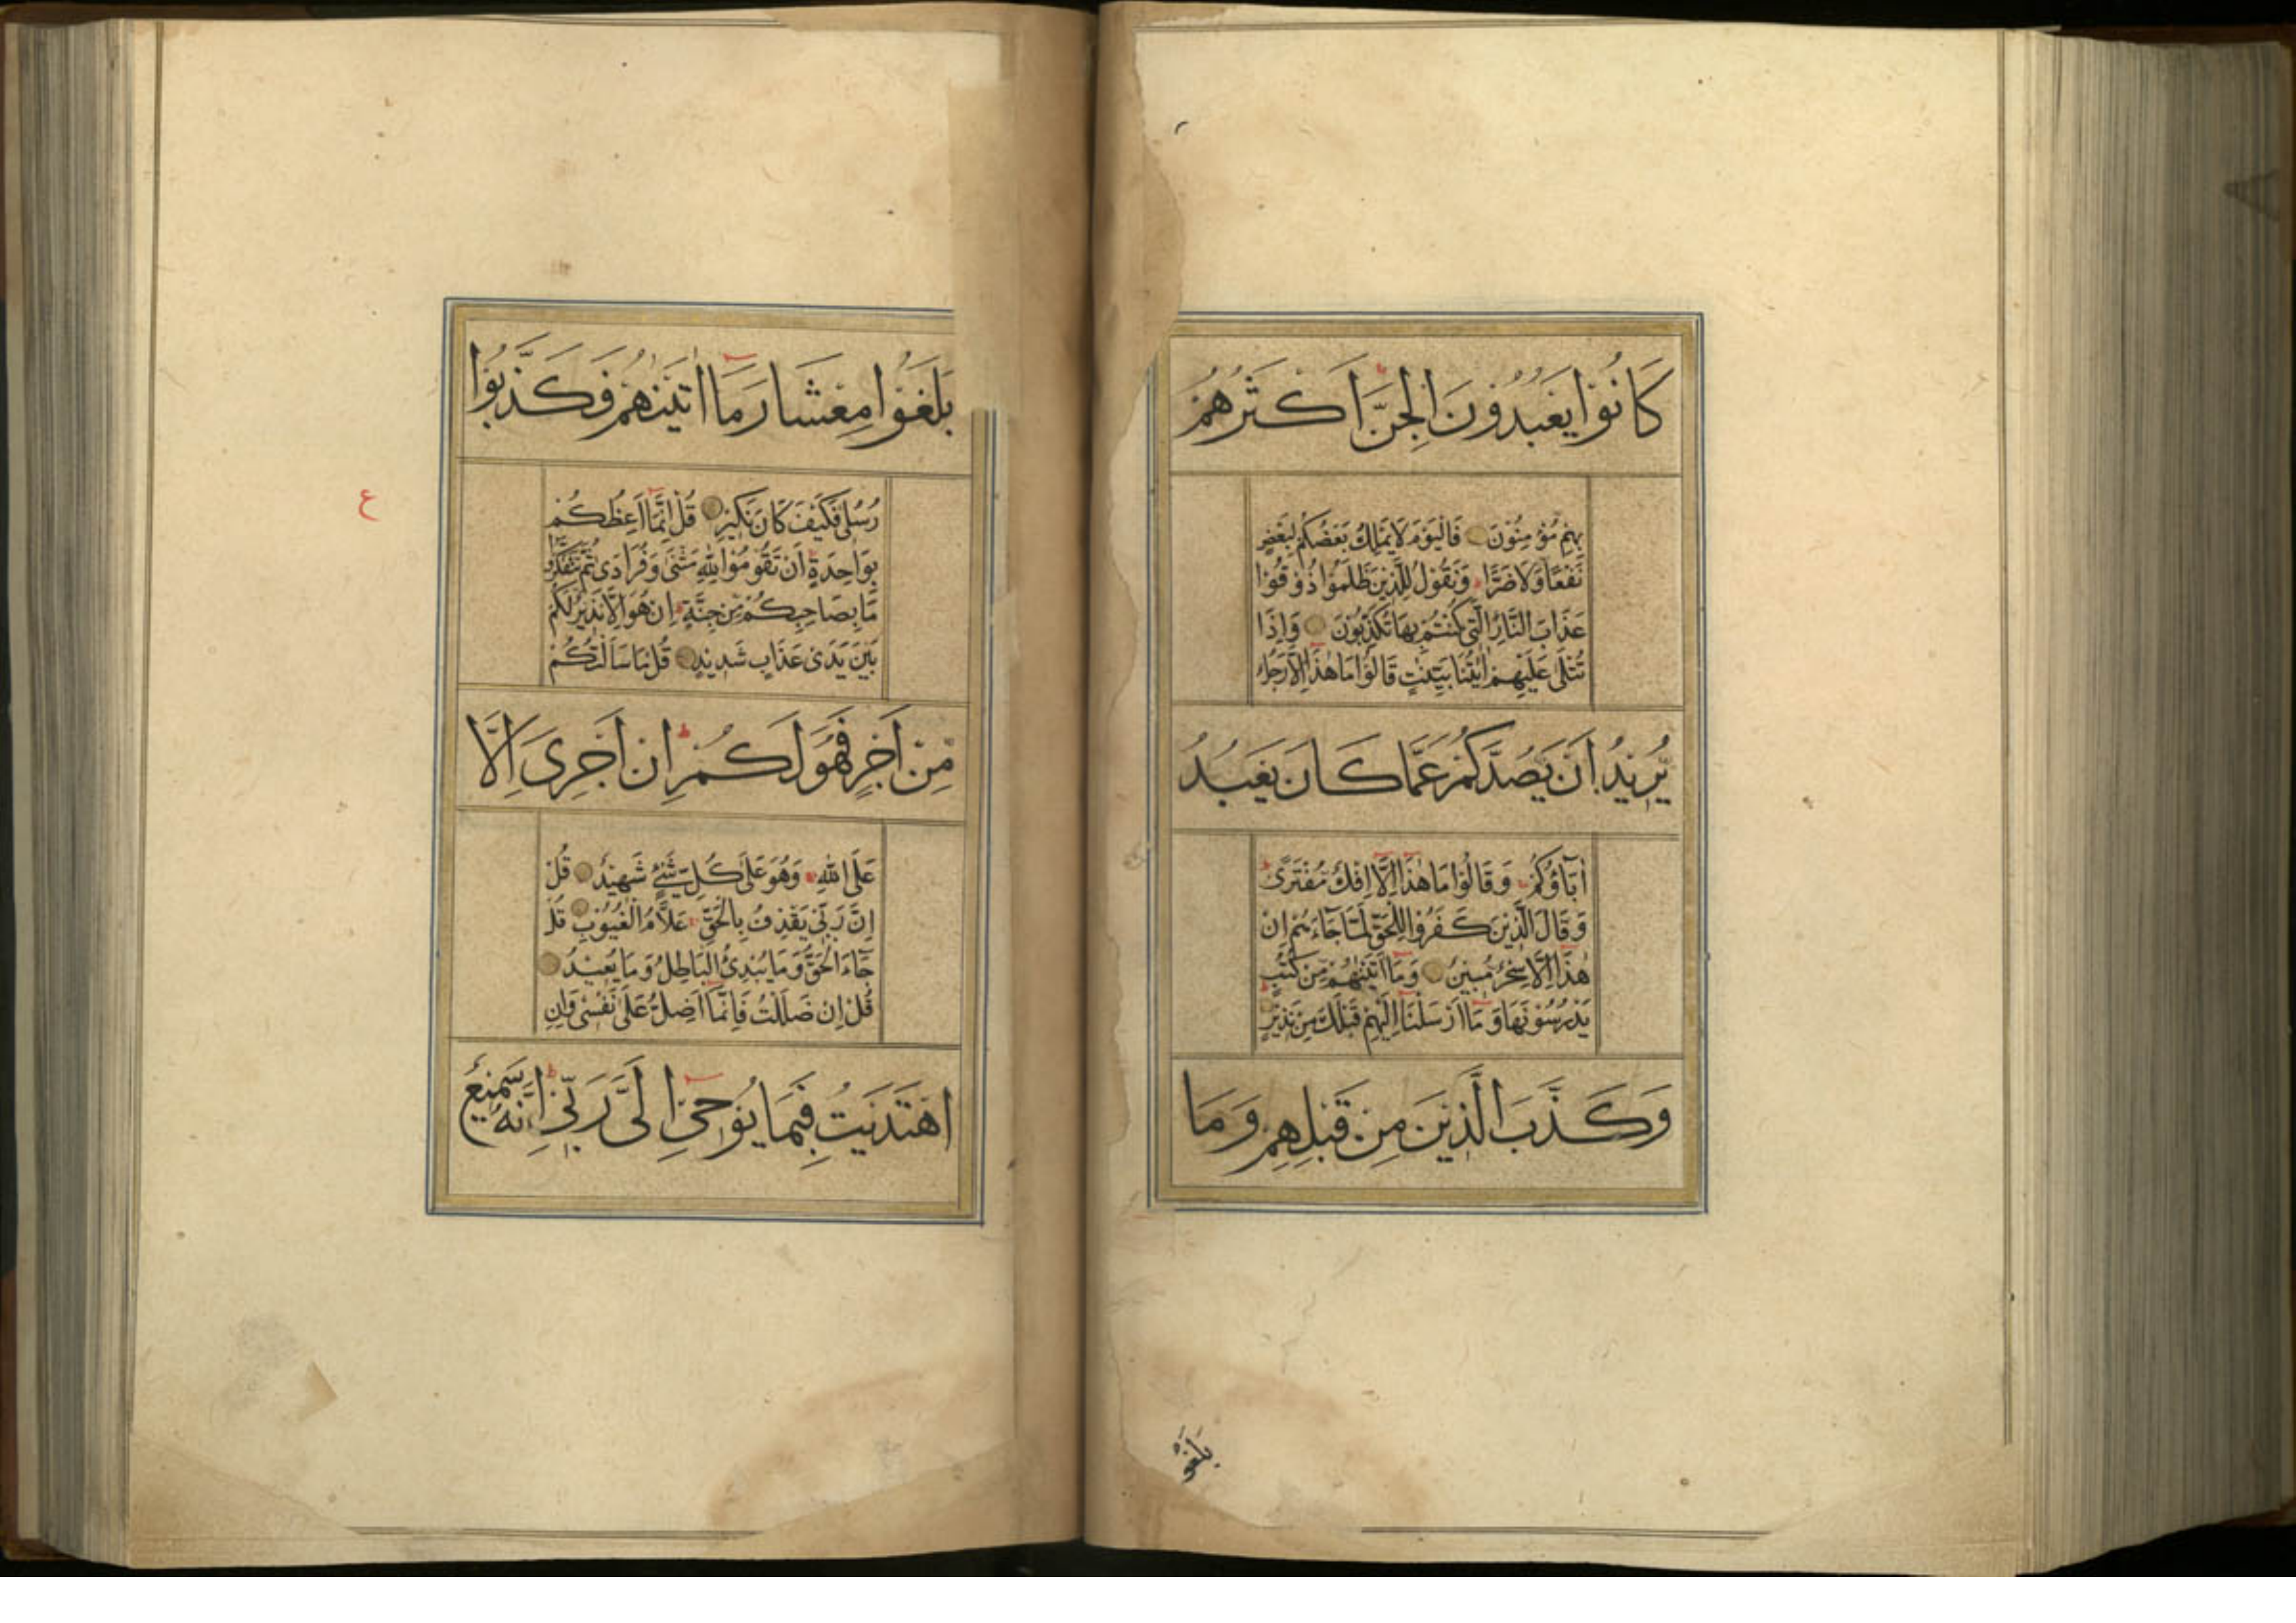 كَانُوا يَعْبُدُونَ الْجِنَّ اَكْثَرُهُمْ
بِهِمْ مُؤْمِنُونَ فَالْيَوْمَ لَا يَمْلِكُ بَعْضُكُمْ لِبَعْضٍ
نَفْعًا وَلَا ضَرًّا ط وَنَقُولُ لِلَّذِينَ ظَلَمُوا ذُوقُوا
عَذَابَ النَّارِ الَّتِي كُنْتُمْ بِهَا تُكَذِّبُونَ وَاِذَا
تُتْلٰى عَلَيْهِمْ اٰيٰتُنَا بَيِّنٰتٍ قَالُوا مَا هٰذَا اِلَّا رَجُلٌ
يُرِيدُ اَنْ يَصُدَّكُمْ عَمَّا كَانَ يَعْبُدُ
اٰبَآؤُكُمْ وَقَالُوا مَا هٰذَا اِلَّا اِفْكٌ مُفْتَرًى ط
وَقَالَ الَّذِينَ كَفَرُوا لِلْحَقِّ لَمَّا جَآءَهُمْ اِنْ
هٰذَا اِلَّا سِحْرٌ مُبِينٌ وَمَا اٰتَيْنٰهُمْ مِنْ كُتُبٍ
يَدْرُسُونَهَا وَمَا اَرْسَلْنَا اِلَيْهِمْ قَبْلَكَ مِنْ نَذِيرٍ ط
وَكَذَّبَ الَّذِينَ مِنْ قَبْلِهِمْ وَمَا
بَلَغُوا
بَلَغُوا مِعْشَارَ مَا اٰتَيْنٰهُمْ فَكَذَّبُوا
رُسُلِي فَكَيْفَ كَانَ نَكِيرِ قُلْ اِنَّمَا اَعِظُكُمْ
ع
بِوَاحِدَةٍ اَنْ تَقُومُوا لِلّٰهِ مَثْنٰى وَفُرَادٰى ثُمَّ تَتَفَكَّرُوا
مَا بِصَاحِبِكُمْ مِنْ جِنَّةٍ ط اِنْ هُوَ اِلَّا نَذِيرٌ لَكُمْ
بَيْنَ يَدَيْ عَذَابٍ شَدِيدٍ قُلْ مَا سَاَلْتُكُمْ
مِنْ اَجْرٍ فَهُوَ لَكُمْ ط اِنْ اَجْرِيَ اِلَّا
عَلَى اللّٰهِ وَهُوَ عَلٰى كُلِّ شَيْءٍ شَهِيدٌ قُلْ
اِنَّ رَبِّي يَقْذِفُ بِالْحَقِّ عَلَّامُ الْغُيُوبِ قُلْ
جَآءَ الْحَقُّ وَمَا يُبْدِئُ الْبَاطِلُ وَمَا يُعِيدُ
قُلْ اِنْ ضَلَلْتُ فَاِنَّمَا اَضِلُّ عَلٰى نَفْسِي وَاِنِ
اهْتَدَيْتُ فَبِمَا يُوحِي اِلَيَّ رَبِّي ط اِنَّهُ سَمِيعٌ